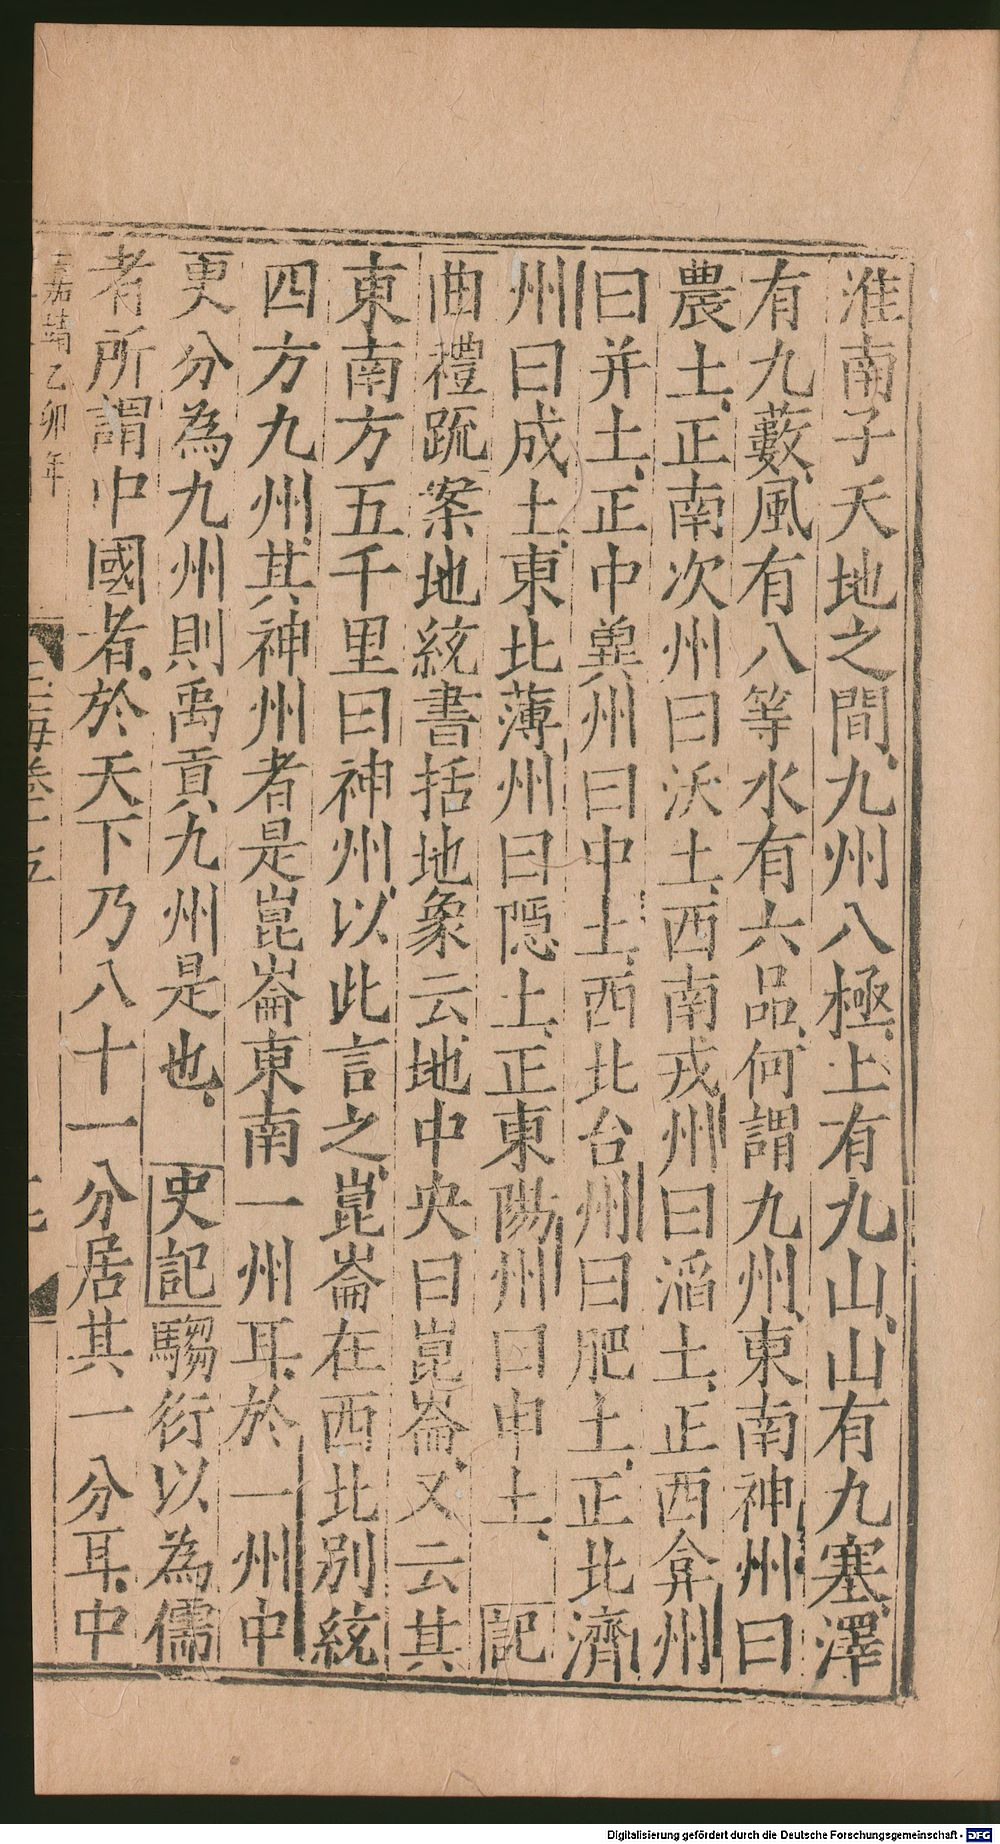 淮南子天地之間九州八極上有九山山有九塞澤
有九藪風有八等水有六品何謂九州東南神州曰
農土正南次州曰沃土西南戎州曰滔土正西弇州
曰并土正中兾州曰中土西北台州曰肥土正北濟
州曰成土東北薄州曰隱土正東陽州曰申土 記
曲禮䟽案地統書括地象云地中央曰崑崙又云其
東南方五千里曰神州以此言之崑崙在西北别統
四方九州其神州者是崑崙東南一州耳於一州中
更分為九州則禹貢九州是也 史記騶衍以為儒
者所謂中國者於天下乃八十一分居其一分耳中
嘉靖乙卯年
玉海卷十五
Digitalisierung gefördert durch die Deutsche Forschungsgemeinschaft - DFG